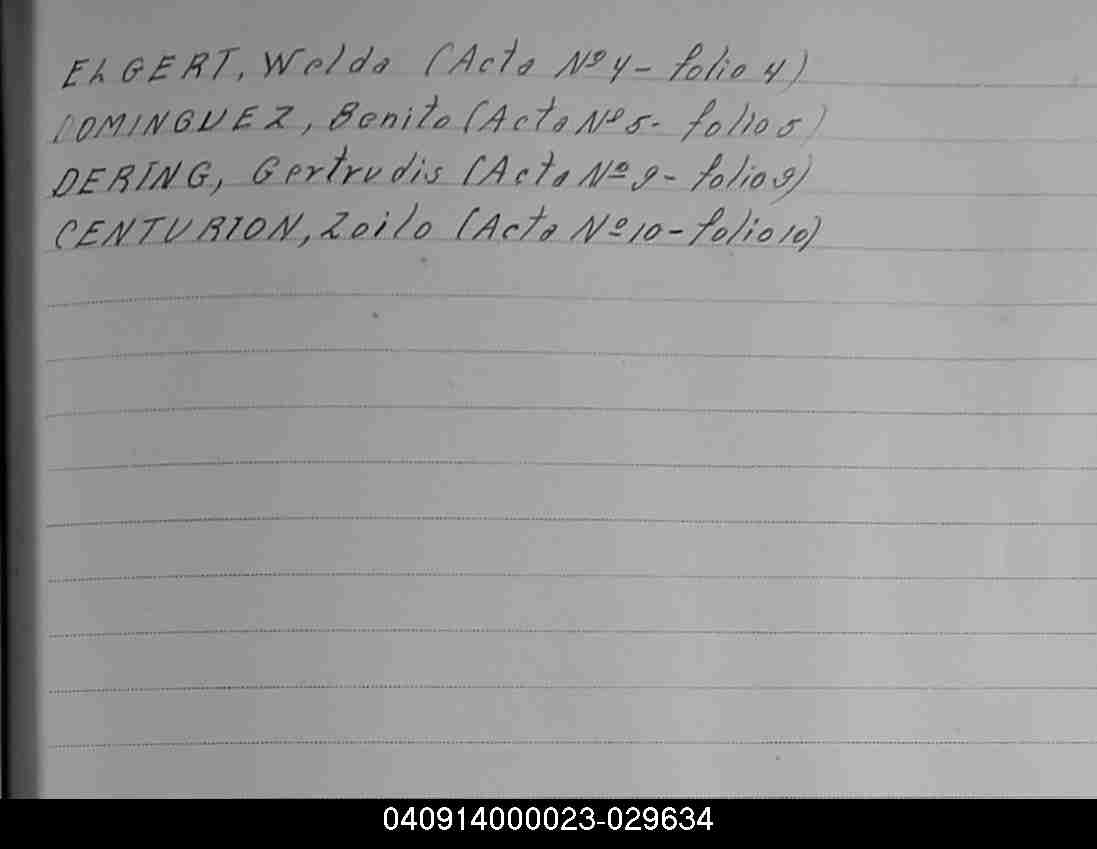 EhGERT, Welda (Acta Nº 4 - folio 4)
DOMINGUEZ, Benito (Acta Nº 5 - folio 5)
DERING, Gertrudis (Acta Nº 9 - folio 9)
CENTURION, Zoilo (Acta Nº 10 - folio 10)
040914000023-029634